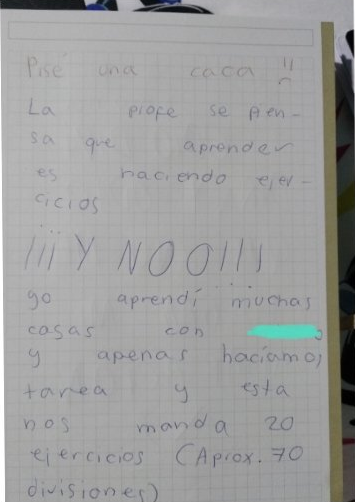 Pisé una caca
La profe se pien-
sa que aprender
es haciendo ejer-
cicios
¡¡¡Y NOO!!!
yo aprendí muchas
cosas con
y apenas hacíamos
tarea y esta
nos manda 20
ejercicios (Aprox. 70
divisiones)